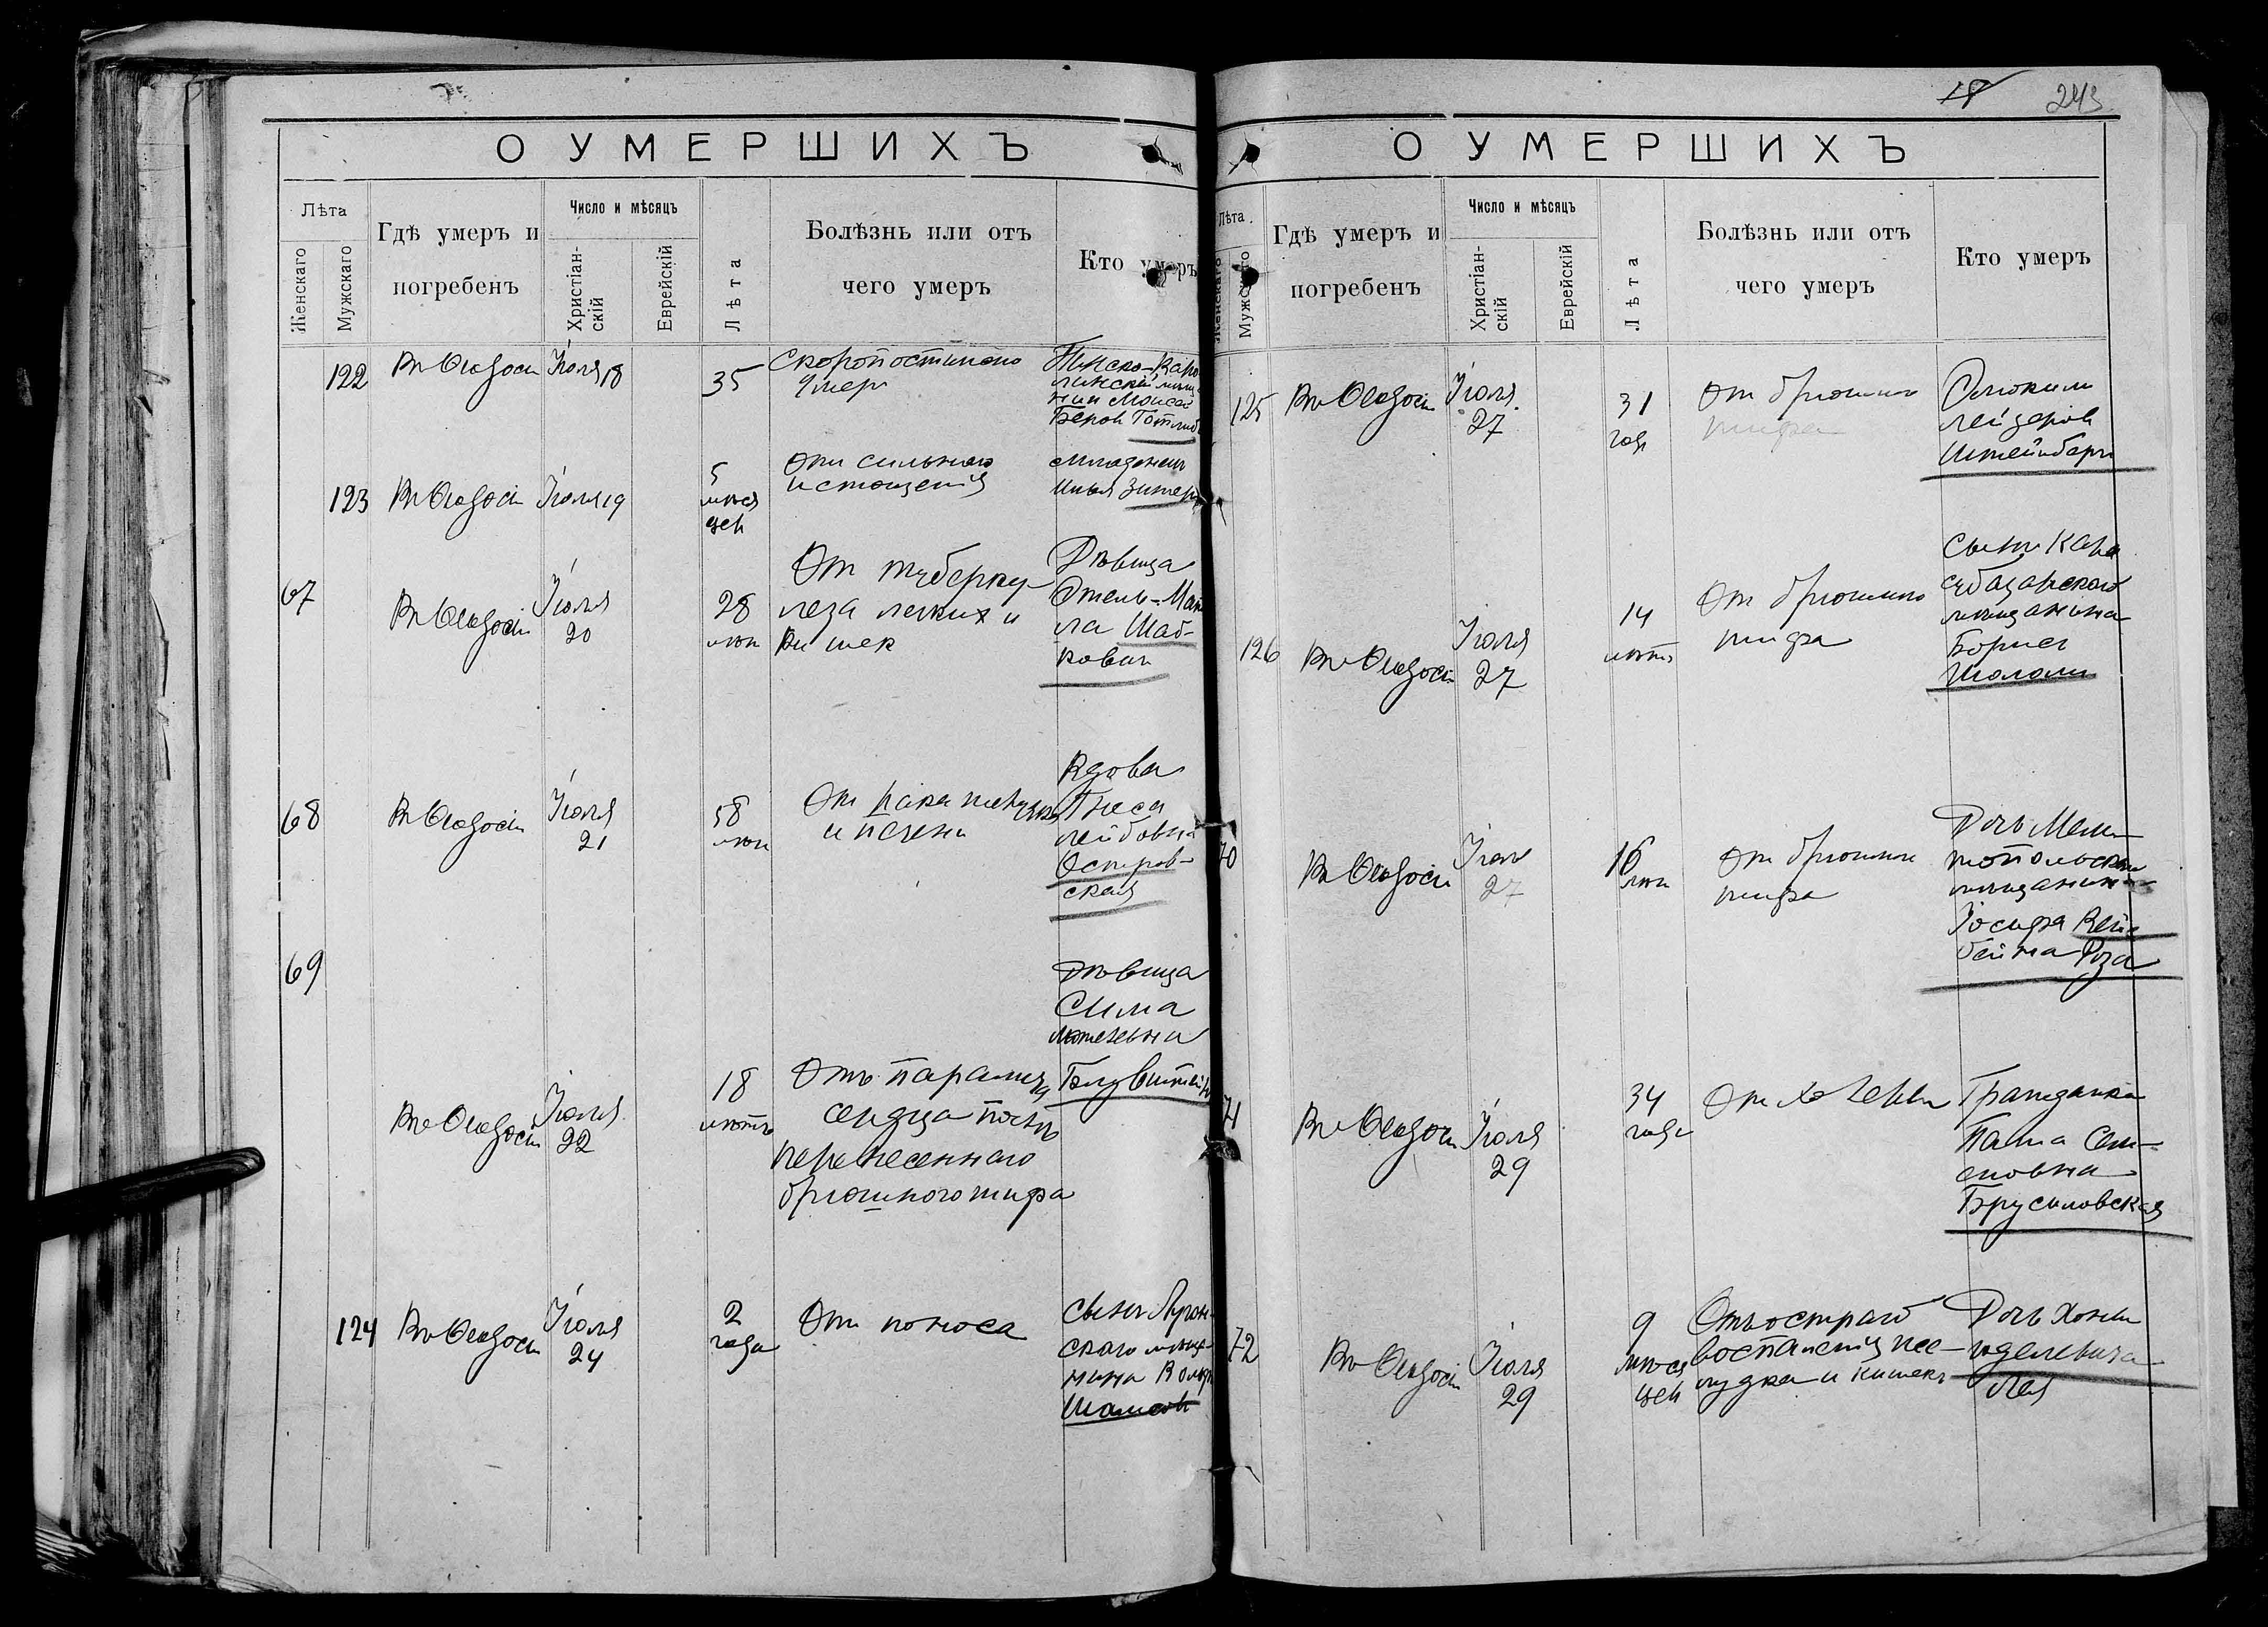 О УМЕРШИХЪ
Лѣта
Женскаго
Мужскаго
Гдѣ умеръ и
погребенъ
Число и мѣсяцъ
Христіан-
скій
Еврейскій
Лѣта
Болѣзнь или отъ
чего умеръ
Кто умеръ
122
Въ Ѳеодосіи
Іюля 18
35
Скоропостижно
умеръ
Пинско-Каро
линскій мѣща
нинъ Моисей
Беровъ Готлиб
123
Въ Ѳеодосіи
Іюля 19
5
мѣся
цев
От сильнаго
истощенія
Младенец
67
Въ Ѳеодосіи
Іюля
20
28
лѣт
От туберку
леза легких и
кишек
Дѣвица
Этель-
ла Шаб-
кович
68
Въ Ѳеодосіи
Іюля
21
58
лѣт
От рака желудка
и печени
Вдова
Лейбовна
Остров-
ская
69
Въ Ѳеодосіи
Іюля
22
18
лѣтъ
Отъ паралича
сердца послѣ
перенесеннаго
брюшного тифа
Дѣвица
Сима
124
Въ Ѳеодосіи
Іюля
24
2
года
От поноса
Сынъ Луган-
скаго мѣща-
нина
18
243
О УМЕРШИХЪ
Лѣта
Женскаго
Мужскаго
Гдѣ умеръ и
погребенъ
Число и мѣсяцъ
Христіан-
скій
Еврейскій
Лѣта
Болѣзнь или отъ
чего умеръ
Кто умеръ
125
Въ Ѳеодосіи
Іюля
27
31
год
От брюшного
тифа
Лейзеров
Штейнбергъ
126
Въ Ѳеодосіи
Іюля
27
14
лѣтъ
От брюшного
тифа
Сынъ Кара
субазарскаго
мѣщанина
Борис
Шолом
70
Въ Ѳеодосіи
Іюля
27
16
лѣт
От брюшного
тифа
Дочь Мели
топольскаго
мѣщанина
Іосифа Вейс
бейна Роза
71
Въ Ѳеодосіи
Іюля
29
34
года
От холеры
Гражданка
Бруcиловская
72
Въ Ѳеодосіи
Іюля
29
9
мѣся
цев
Отъ остраго
воспаленія же-
лудка и кишекъ
Дочь
Юделевича
Лея